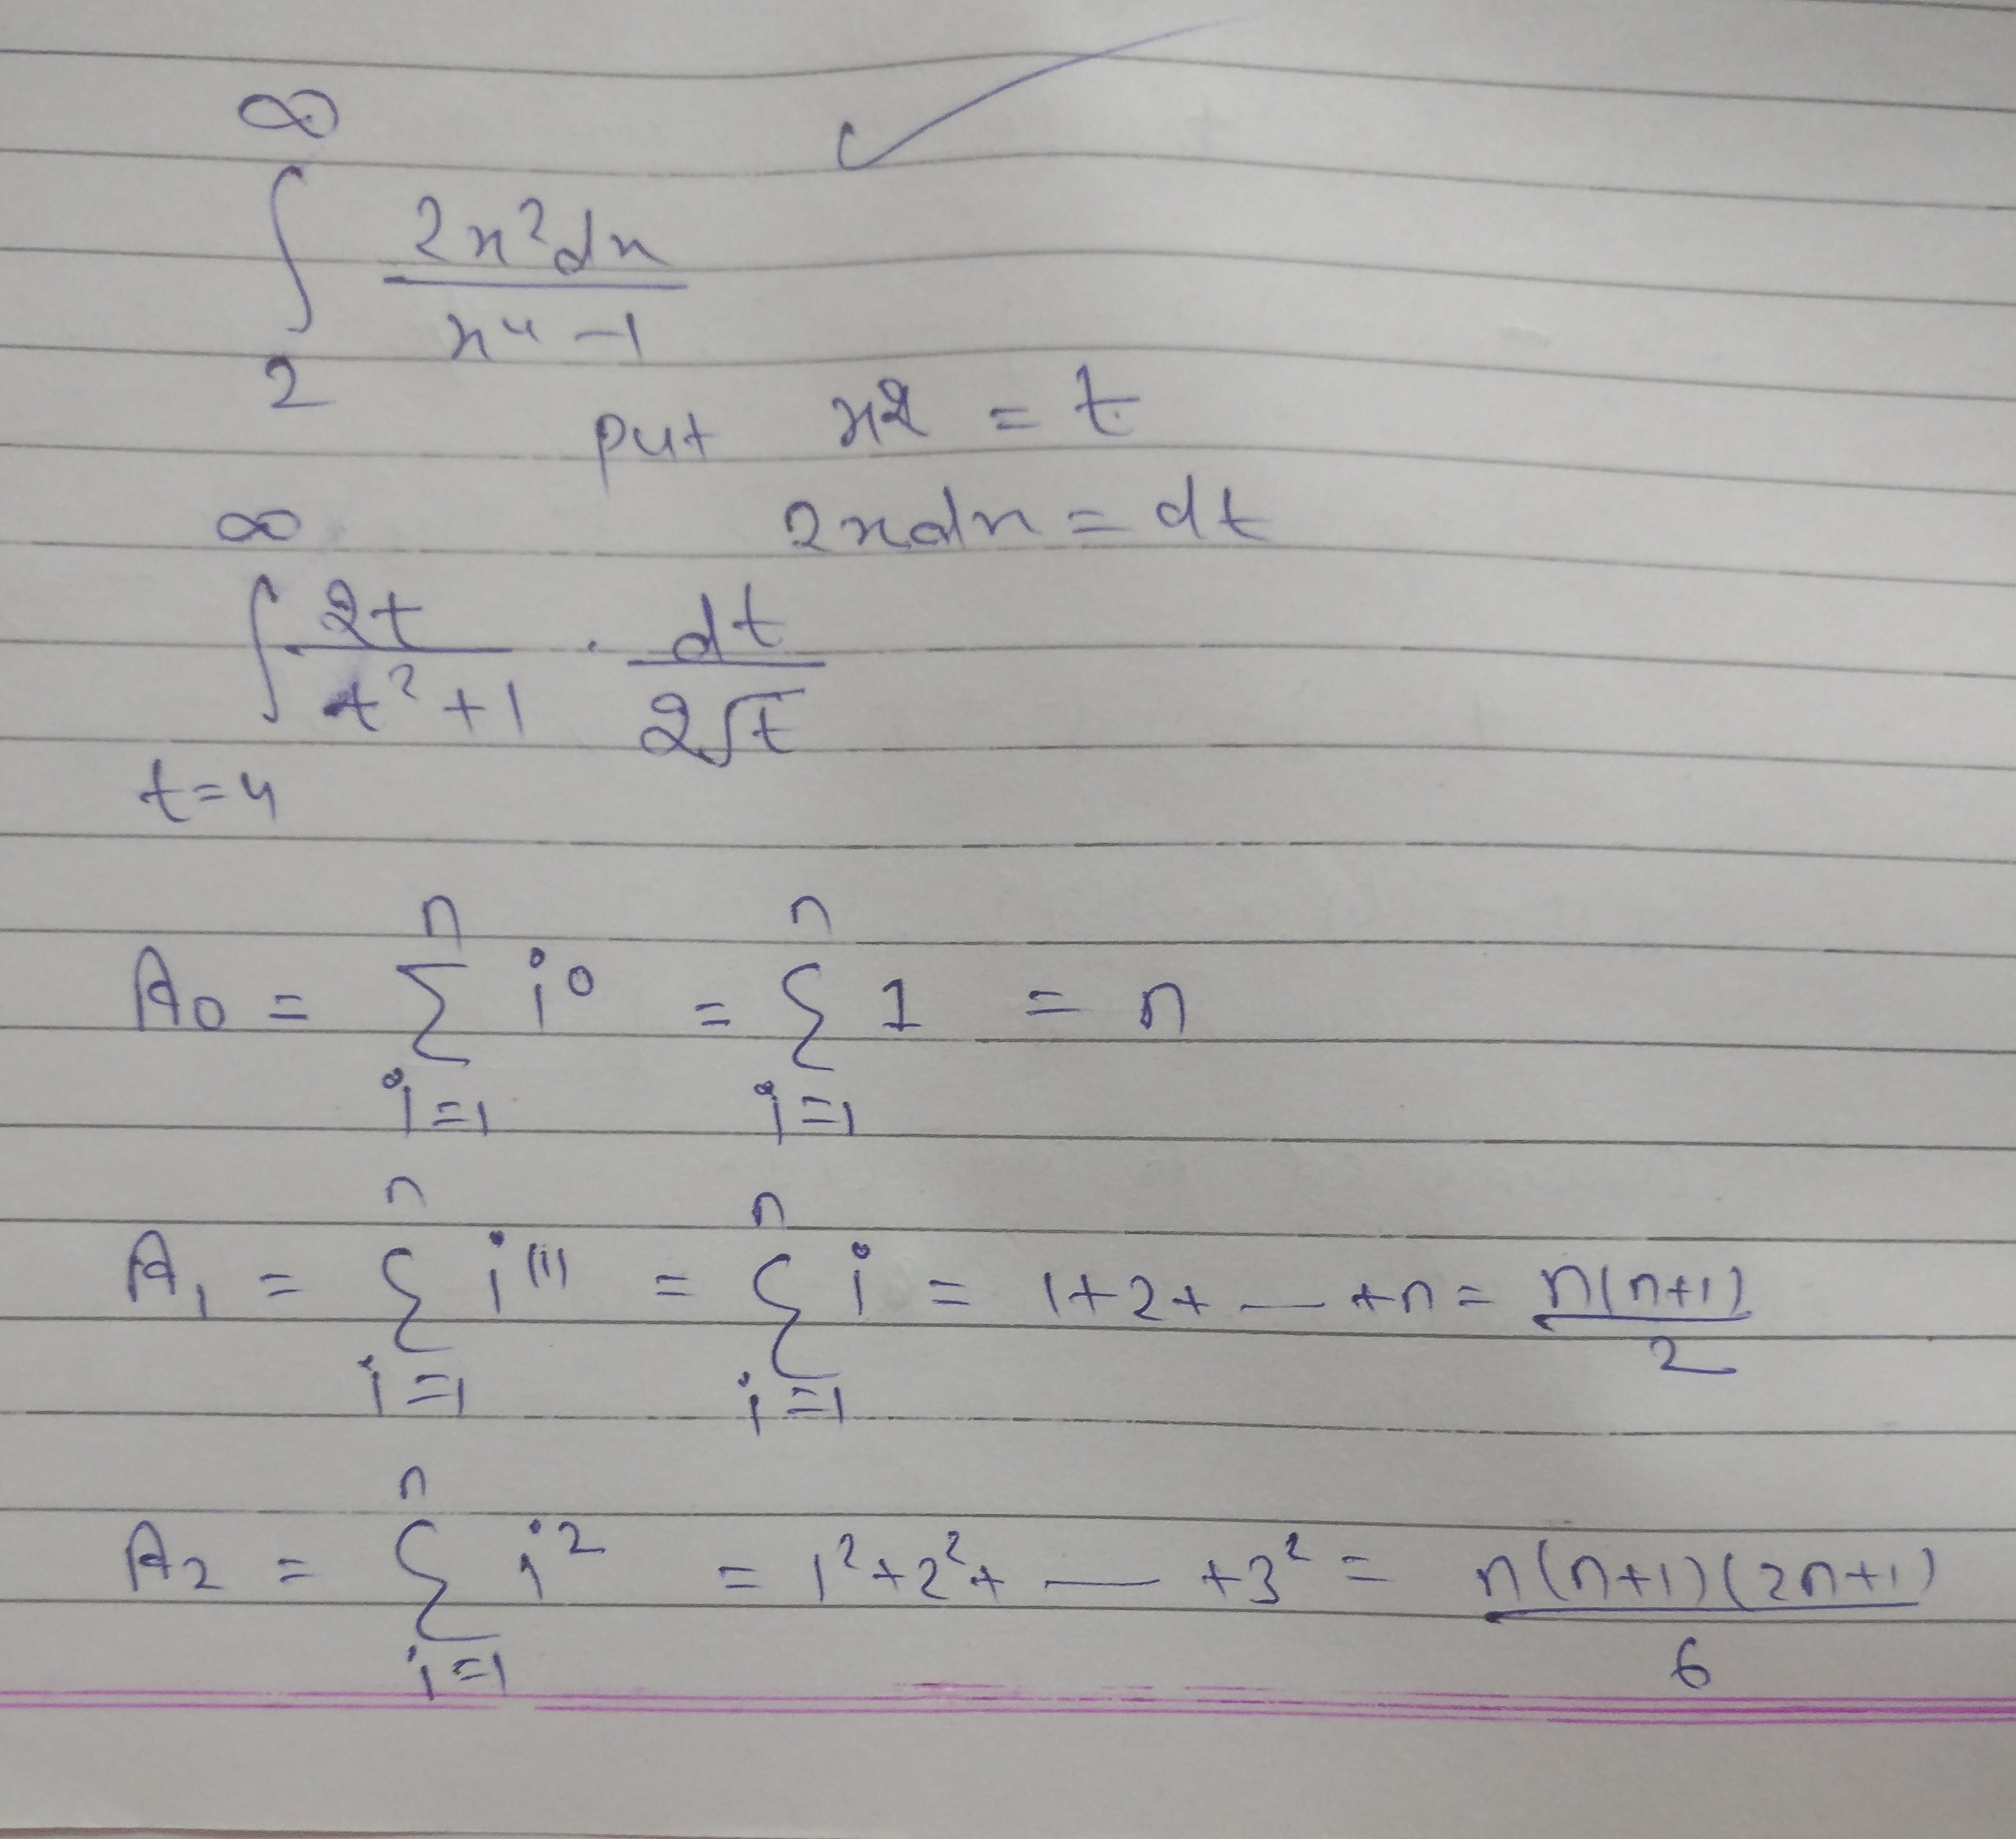 ∞
∫ 2x²dx / x⁴ - 1
2
put x2 = t
2xdx = dt
∞
∫ 2t / t² + 1 . dt / 2√t
t=4
A₀ = n∑i=1 i⁰ = n∑i=1 1 = n
A₁ = n∑i=1 i⁽¹⁾ = n∑i=1 i = 1+2+ — +n = n(n+1) / 2
A₂ = n∑i=1 i² = 1²+2²+ — +3² = n(n+1)(2n+1) / 6